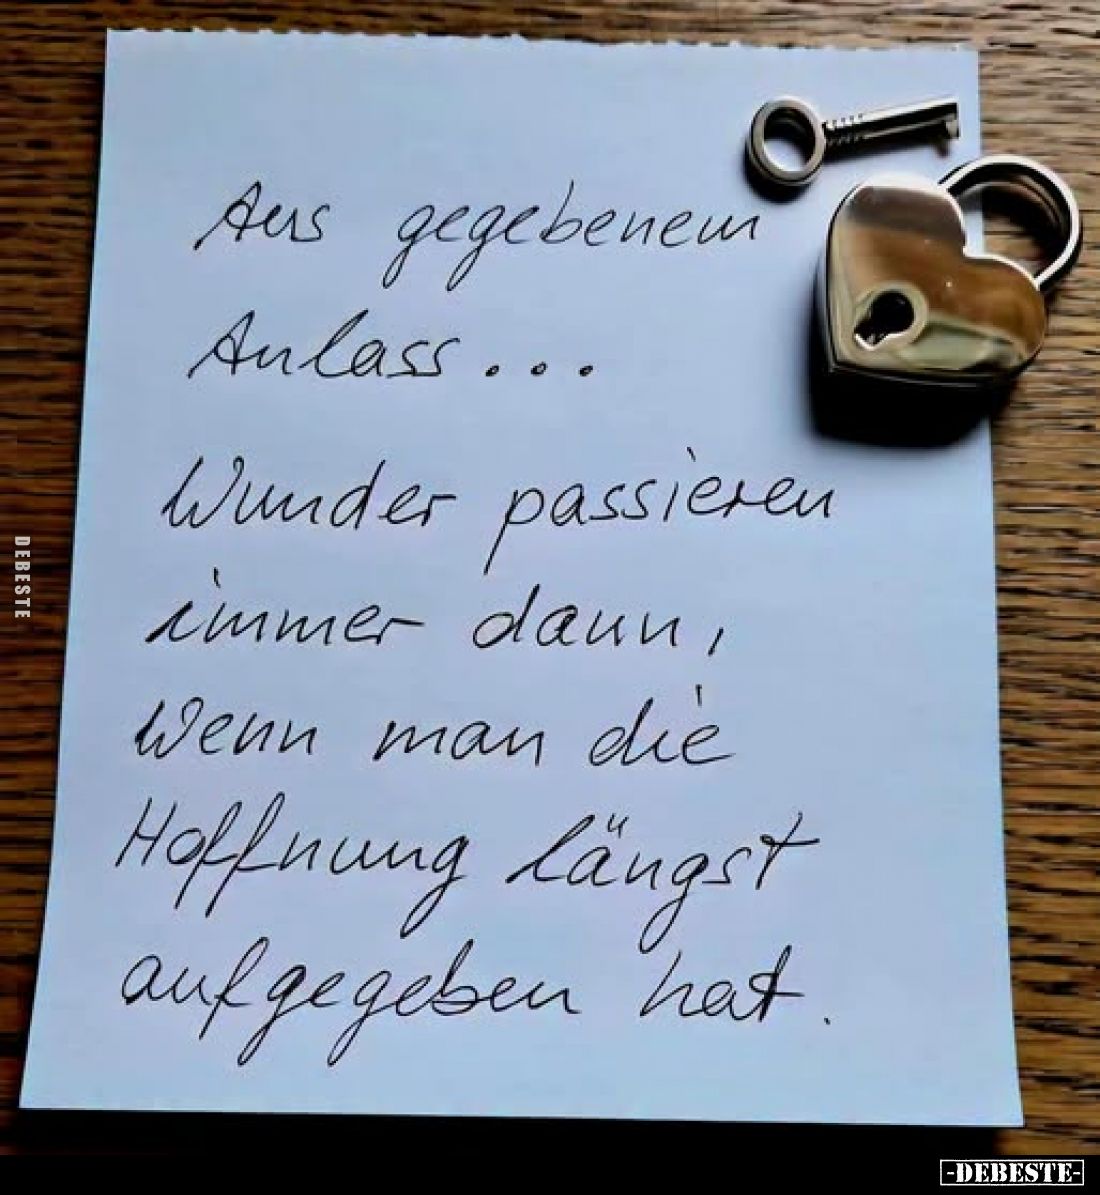 Aus gegebenem
Anlass...
Wunder passieren
immer dann,
wenn man die
Hoffnung längst
aufgegeben hat.
DEBESTE
-DEBESTE-